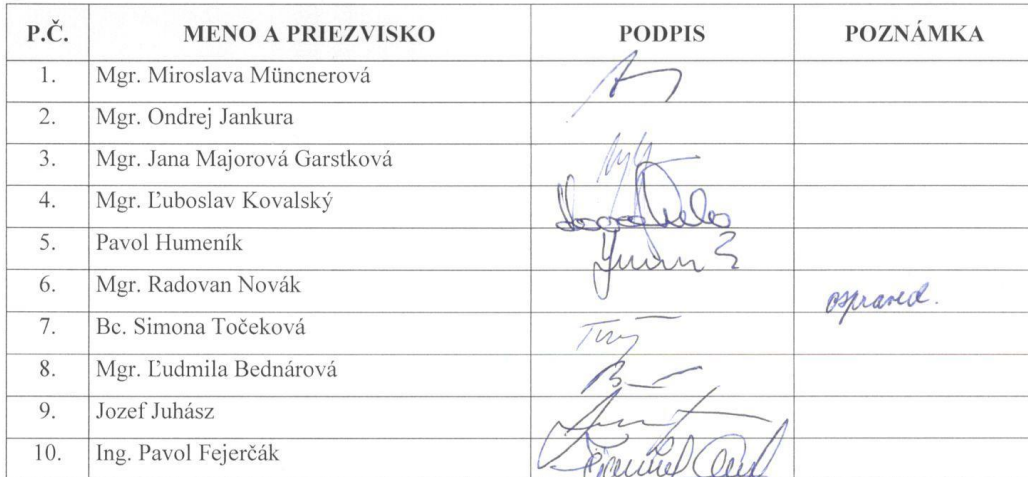 P.Č. MENO A PRIEZVISKO PODPIS POZNÁMKA
1. Mgr. Miroslava Müncnerová
2. Mgr. Ondrej Jankura
3. Mgr. Jana Majorová Garstková
4. Mgr. Ľuboslav Kovalský
5. Pavol Humeník
6. Mgr. Radovan Novák ospraved.
7. Bc. Simona Točeková
8. Mgr. Ľudmila Bednárová
9. Jozef Juhász
10. Ing. Pavol Fejerčák